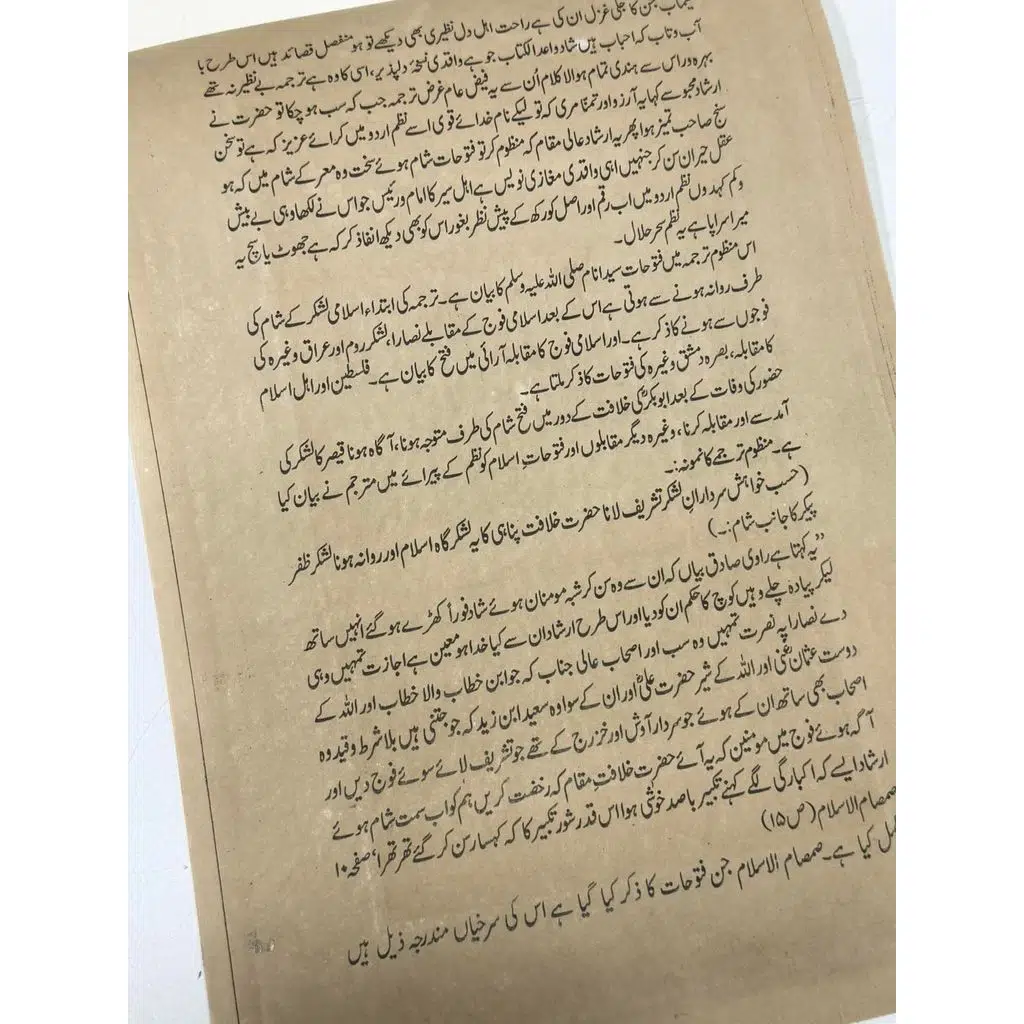 سیماب جن کا جلی غزل ان کی ہے راحت اہل دل نظیری بھی دیکھے تو ہو منفصل قصائد ہیں اس طرح با
آب و تاب کہ احباب ہیں شاد واعد الکتاب جو ہے واقدی نسخہ دلپذیر، اسی کا وہ ہے ترجمہ بے نظیر نہ تھے
بہرہ ور اس سے ہندی تمام ہوا لا کلام اُن سے یہ فیض عام غرض ترجمہ جب کہ سب ہو چکا تو حضرت نے
ارشاد مجبو سے کہا یہ آرزو اور تمنا مری کہ تو لیکے نام خدائے قوی اسے نظم اردو میں کرائے عزیز کہ ہے تو سخن
سنج صاحب تمیز ہوا پھر یہ ارشاد عالی مقام کہ منظوم کر تو فتوحات شام ہوئے سخت وہ معرکے شام میں کہ ہو
عقل حیران سن کر جنہیں اہی واقدی مغازی نویس ہے اہل سیر کا امام و رئیس جو اس نے لکھا وہی بے بیش
وکم کہدوں نظم اردو میں اب رقم اور اصل کو رکھ کے پیش نظر بغور اس کو بھی دیکھ انفاذ کر کہ ہے جھوٹ یا سچ یہ
میرا سراپا ہے یہ نظم سحر حلال۔
اس منظوم ترجمہ میں فتوحات سید انام صلی اللہ علیہ وسلم کا بیان ہے۔ ترجمہ کی ابتداء اسلامی لشکر کے شام کی
طرف روانہ ہونے سے ہوتی ہے اس کے بعد اسلامی فوج کے مقابلے نصارا، لشکر روم اور عراق وغیرہ کی
فوجوں سے ہونے کا ذکر ہے۔ اور اسلامی فوج کا مقابلہ آرائی میں فتح کا بیان ہے۔ فلسطین اور اہل اسلام
کا مقابلہ، بصرہ دمشق وغیرہ کی فتوحات کا ذکر ملتا ہے۔
حضور کی وفات کے بعد ابوبکرؓ کی خلافت کے دور میں فتح شام کی طرف متوجہ ہونا، آگاہ ہونا قیصر کا لشکر کی
آمد سے اور مقابلہ کرنا، وغیرہ دیگر مقابلوں اور فتوحاتِ اسلام کو نظم کے پیرائے میں مترجم نے بیان کیا
ہے۔ منظوم ترجمے کا نمونہ:۔
(حسب خواہش سردارانِ لشکر تشریف لانا حضرت خلافت پناہی کا یہ لشکر گاہ اسلام اور روانہ ہونا لشکر ظفر
پیکر کا جانب شام:۔)
”یہ کہتا ہے راوی صادق بیاں کہ ان سے وہ سن کر شہ مومنان ہوئے شاد فوراً کھڑے ہو گئے انہیں ساتھ
لیکر پیادہ چلے وہیں کوچ کا حکم ان کو دیا اور اس طرح ارشاد ان سے کیا خدا ہو معین ہے اجازت تمہیں وہی
دے نصارا پہ نصرت تمہیں وہ سب اور اصحاب عالی جناب کہ جو ابن خطاب والا خطاب اور اللہ کے
دوست عثمان غنیؓ اور اللہ کے شیر حضرت علیؓ اور ان کے سوا وہ سعید ابن زید کہ جو جنتی ہیں بلا شرط و قید وہ
اصحاب بھی ساتھ ان کے ہوئے جو سردار آوش اور خزرج کے تھے جو تشریف لائے سوئے فوج دیں اور
آگہ ہوئے فوج میں مومنین کہ یہ آئے حضرت خلافتِ مقام کہ رخصت کریں ہم کو اب سمت شام ہوئے
ارشاد ایسے کہ اکبارگی لگے کہنے تکبیر با صد خوشی ہوا اس قدر شور تکبیر کا کہ کہسار سن کر گئے تھر تھرا‘ صفحہ ۱۰
صمصام الاسلام (ص ۱۵)
کیا ہے۔ صمصام الاسلام جن فتوحات کا ذکر کیا گیا ہے اس کی سرخیاں مندرجہ ذیل ہیں